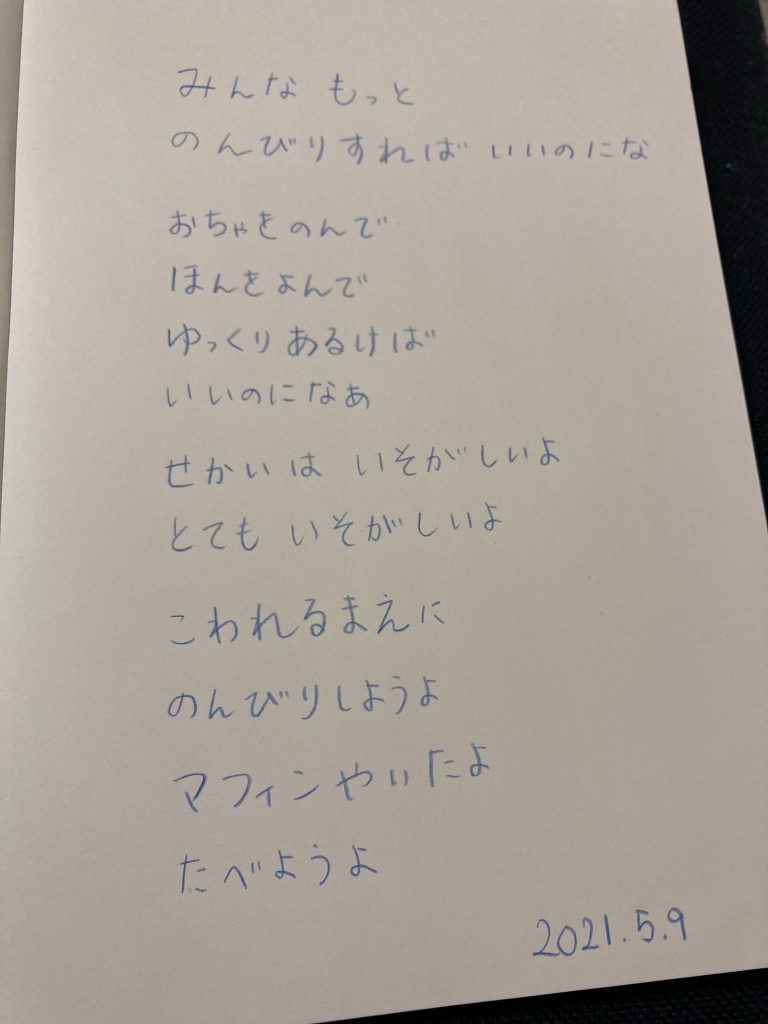 みんな もっと
のんびりすれば いいのにな
おちゃをのんで
ほんをよんで
ゆっくり あるけば
いいのになあ
せかいは いそがしいよ
とても いそがしいよ
こわれるまえに
のんびりしようよ
マフィンやいたよ
たべようよ
2021.5.9